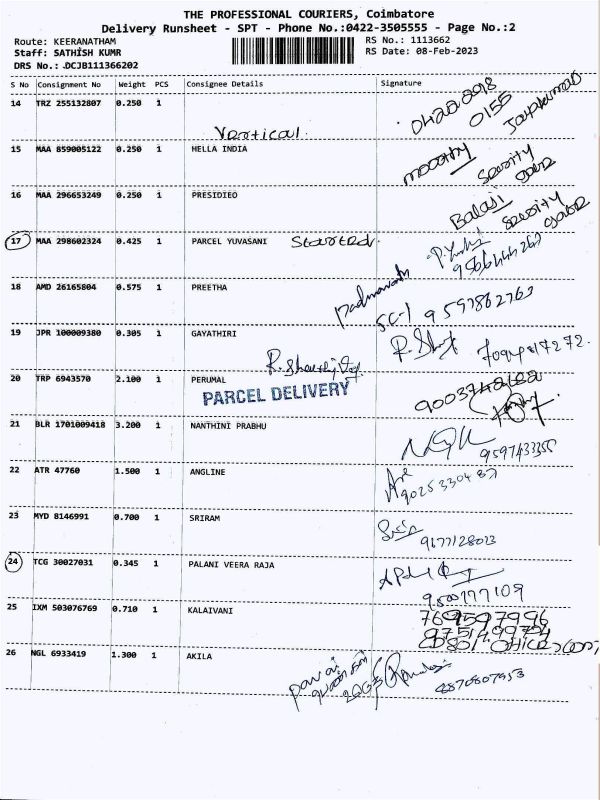 THE PROFESSIONAL COURIERS, Coimbatore
Delivery Runsheet - SPT - Phone No.:0422-3505555 - Page No.:2
Route: KEERANATHAM RS No.: 1113662
Staff: SATHISH KUMR RS Date: 08-Feb-2023
DRS No.: DCJB111366202
S No Consignment No Weight PCS Consignee Details Signature
14 TRZ 255132807 0.250 1
0155 Jayakumar
Vertical
15 MAA 859005122 0.250 1 HELLA INDIA moorthy
16 MAA 296653249 0.250 1 PRESIDIEO Balaji
17 MAA 298602324 0.425 1 PARCEL YUVASANI Started.
18 AMD 26165804 0.575 1 PREETHA
9597862763
19 JPR 100009380 0.305 1 GAYATHIRI
20 TRP 6943570 2.100 1 PERUMAL
PARCEL DELIVERY
21 BLR 1701009418 3.200 1 NANTHINI PRABHU
9597433355
22 ATR 47760 1.500 1 ANGLINE
9025330487
23 MYD 8146991 0.700 1 SRIRAM
9677128023
24 TCG 30027031 0.345 1 PALANI VEERA RAJA
9500177109
25 IXM 503076769 0.710 1 KALAIVANI
7695977996
26 NGL 6933419 1.300 1 AKILA
8870807953